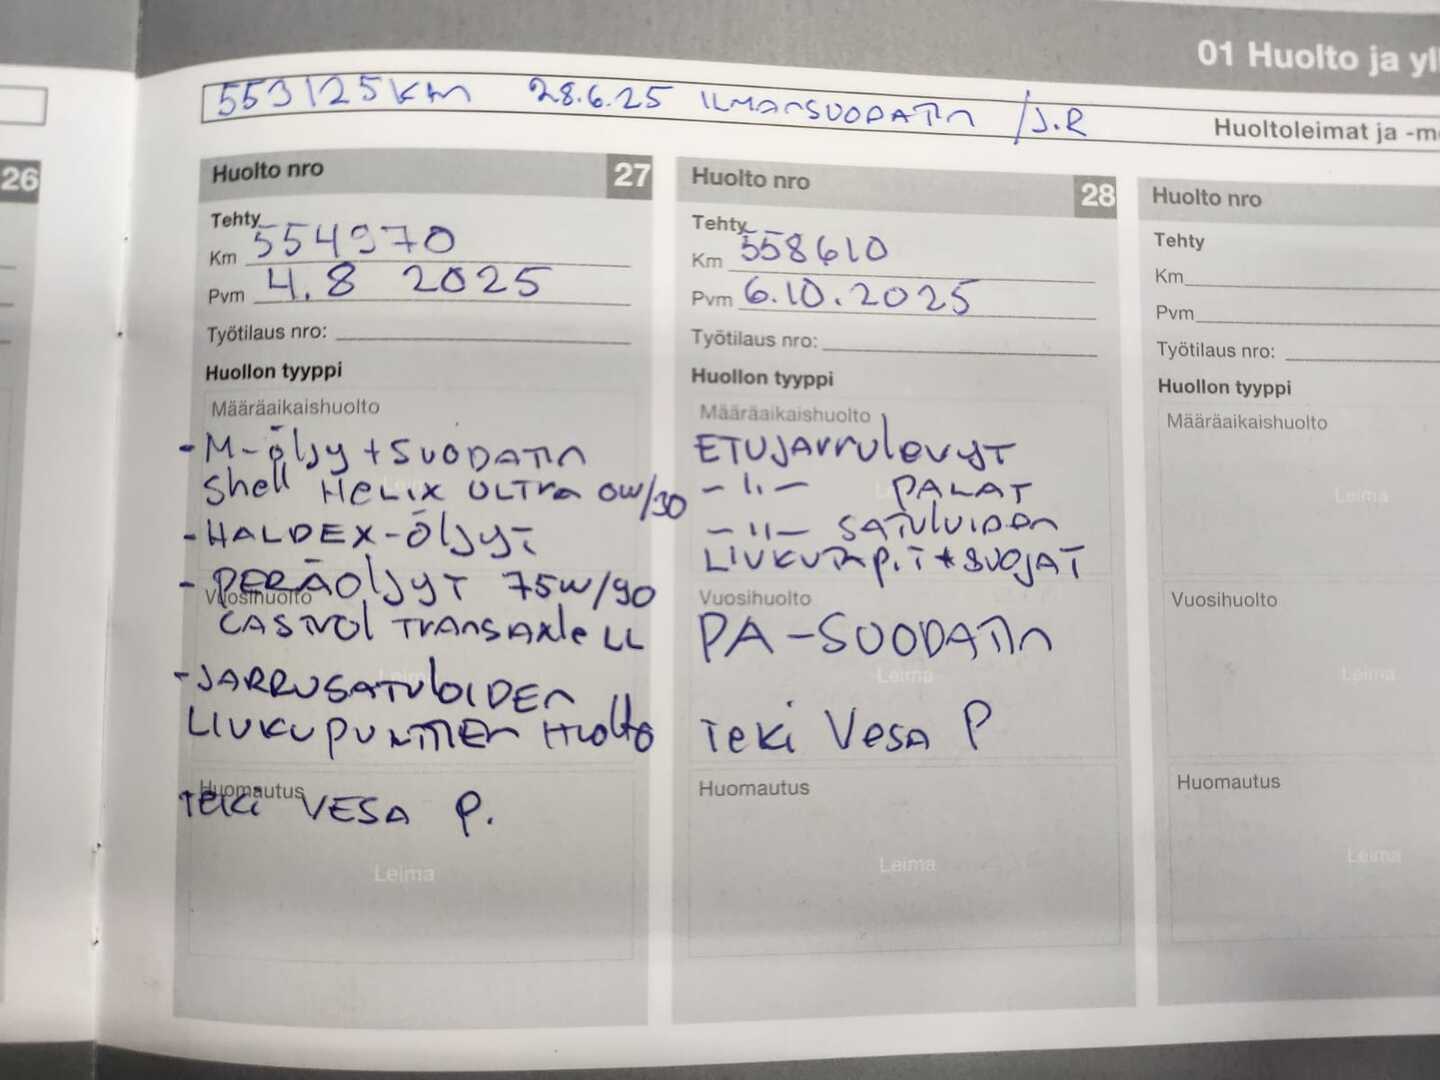 01 Huolto ja yll
553125KM 28.6.25 ILMANSUODATIN /J.R
Huoltoleimat ja -m
26
Huolto nro 27
Tehty
Km 554970
Pvm 4.8 2025
Työtilaus nro:
Huollon tyyppi
Määräaikaishuolto
- M-öljy + SUODATIN
Shell HELIX ULTRA 0W/30
Leima
- HALDEX-ÖLJYT
- PERÄÖLJYT 75W/90
Vuosihuolto
CASTROL TRANSAXLE LL
Leima
- JARRUSATULOIDEN
LIUKUPUNTTIEN HUOLTO
Huomautus
TEKI VESA P.
Leima
Huolto nro 28
Tehty
Km 558610
Pvm 6.10.2025
Työtilaus nro:
Huollon tyyppi
Määräaikaishuolto
ETUJARRULEVYT
- II - PALAT
Leima
- II - SATULOIDEN
LIUKUTAP.T + SUOJAT
Vuosihuolto
PA-SUODATIN
Leima
TEKI VESA P
Huomautus
Leima
Huolto nro
Tehty
Km
Pvm
Työtilaus nro:
Huollon tyyppi
Määräaikaishuolto
Leima
Vuosihuolto
Leima
Huomautus
Leima